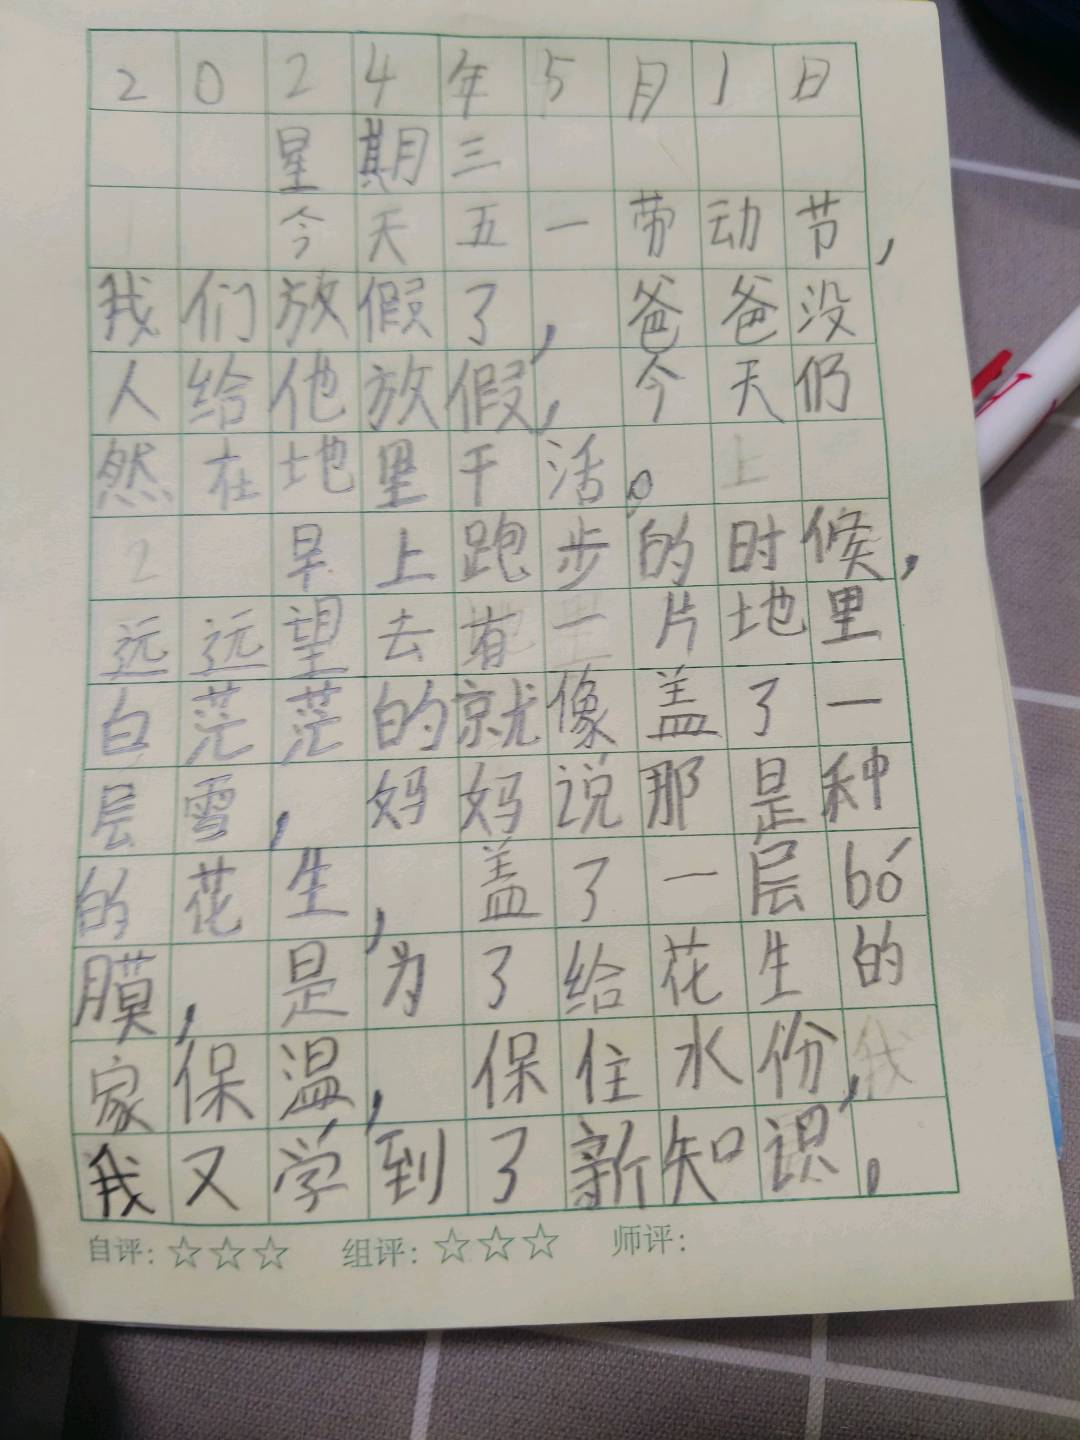 2024年5月1日
星期三
今天五一劳动节,
我们放假了,爸爸没
人给他放假,今天仍
然在地里干活。
早上跑步的时候,
远远望去有一片地里
白茫茫的就像盖了一
层雪,妈妈说那是种
的花生,盖了一层bó
膜,是为了给花生的
家保温,保住水份,
我又学到了新知识,
自评:☆☆☆ 组评:☆☆☆ 师评: